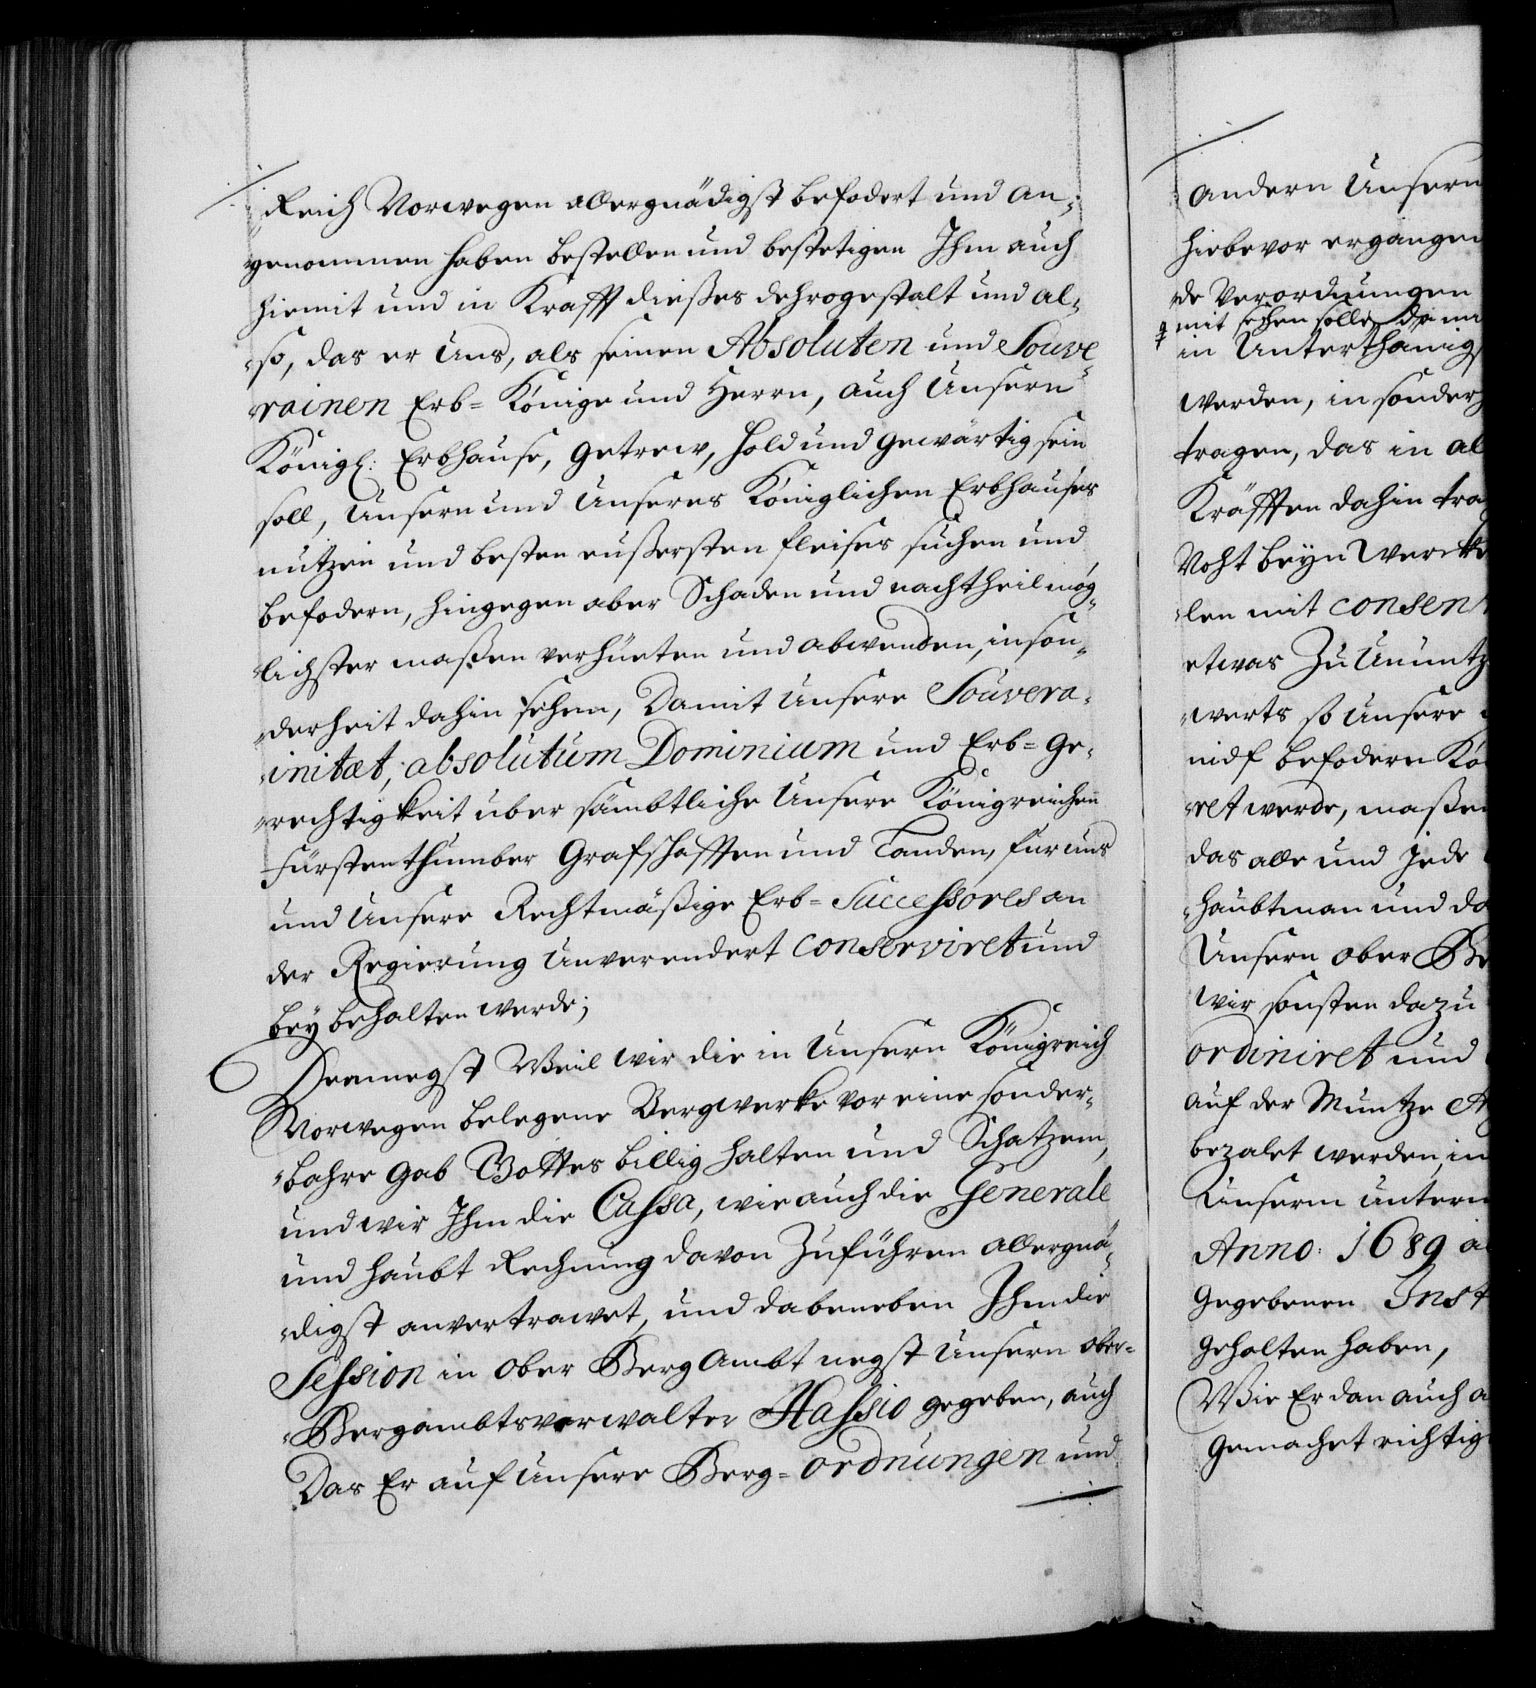 Reich Norwegen allergnädigst befodert und an-
genommen haben bestellen und bestetigen Ihm auch
hiemit und in Krafft dießes dehrogestalt und al-
so, das er Uns, als seinen Absoluten und Souve-
rainen Erb= Könige und Herrn, auch Unsern
Königl: Erbhause, getrew, hold und gewärtig sein
soll, Unsern und Unseres Königlichen Erbhauses
nutzen und besten eußersten fleises suchen und
befodern, hingegen aber Schaden und nachtheil mög-
lichster maßen verhüeten und abwenden, inson-
derheit dahin sehen, Damit Unsere Souvera-
initæt, absolutum Dominium und Erb= ge-
rechtigkeit uber sämbtliche Unsere Königreichen
Fürstenthumber Grafschafften und Landen, fur uns
und Unsere Rechtmäßige Erb= Successores an
der Regierung Unverendert conserviret und
bey behalten werde;
Demnegst Weil wir die in Unsern Königreich
Norwegen belegene Bergwerke vor eine sonder-
bahre gab Gottes billig halten und Schatzen,
und wir Ihm die Cassa, wie auch die Generale
und haubt Rechnung davon Zuführen allergnä-
digst anvertrawet, und dabeneben Ihm die
Session in Ober BergAmbt negst Unsern ober-
Bergambtsverwalter Hassio gegeben, auch
Das Er auf Unsere Berg= ordnungen und
andern Unsern
hiebevor ergangen
de Verordnungen
mit sehen solle
in Unterthänigs
werden, in sonder
tragen, das in al
Kräfften dahin tra
Roht beyn Wercke
len mit consen
etwas Zu Ununtz
werts so Unsere
nicht befodern Kö
ret werde, maßen
das alle und jede
haubtman und da
Unsern ober Be
wir sonsten dazu
ordiniret und
auf der Muntze
bezalet werden, in
Unserm unterm
Anno: 1689 a
gegebenen Inst
gehalten haben,
Wie Er dan auch a
gemachet richtig